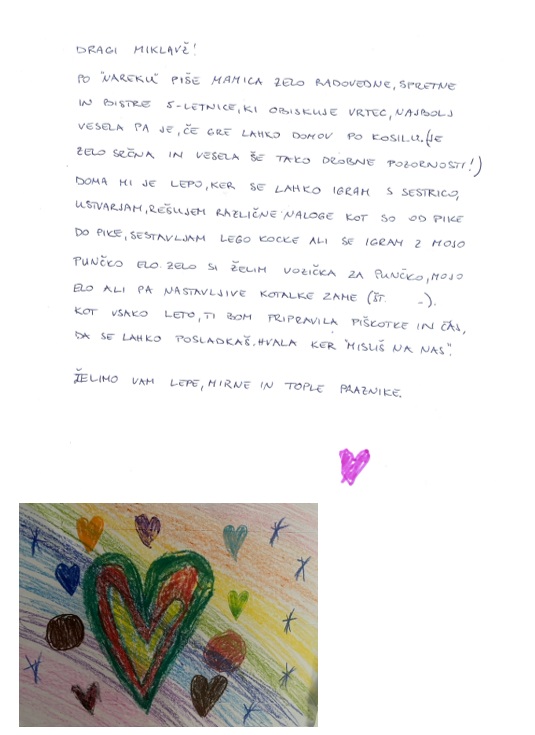 DRAGI MIKLAVŽ!
PO "NAREKU" PIŠE MAMICA ZELO RADOVEDNE, SPRETNE
IN BISTRE 5-LETNICE, KI OBISKUJE VRTEC, NAJBOLJ
VESELA PA JE, ČE GRE LAHKO DOMOV PO KOSILU. (JE
ZELO SRČNA IN VESELA ŠE TAKO DROBNE POZORNOSTI!)
DOMA MI JE LEPO, KER SE LAHKO IGRAM S SESTRICO,
USTVARJAM, REŠUJEM RAZLIČNE NALOGE KOT SO OD PIKE
DO PIKE, SESTAVLJAM LEGO KOCKE ALI SE IGRAM Z MOJO
PUNČKO ELO. ZELO SI ŽELIM VOZIČKA ZA PUNČKO, MOJO
ELO ALI PA NASTAVLJIVE KOTALKE ZAME (ŠT. -).
KOT VSAKO LETO, TI BOM PRIPRAVILA PIŠKOTKE IN ČAJ,
DA SE LAHKO POSLADKAŠ. HVALA KER "MISLIŠ NA NAS".
ŽELIMO VAM LEPE, MIRNE IN TOPLE PRAZNIKE.